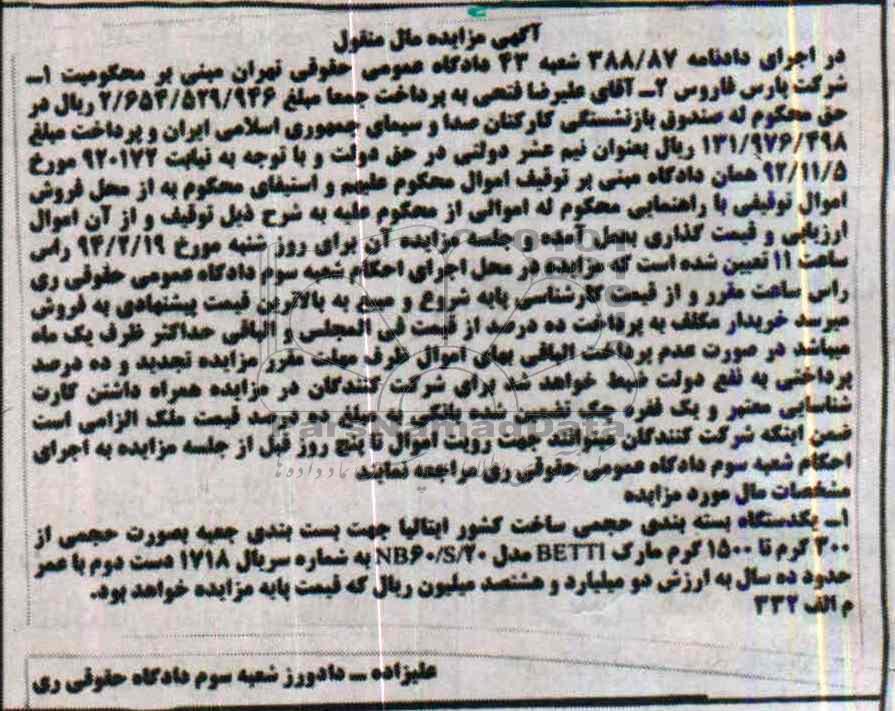 آگهی مزایده مال منقول
در اجرای دادنامه ۳۸۸/۸۷ شعبه ۴۳ دادگاه عمومی حقوقی تهران مبنی بر محکومیت ۱ـ
شرکت پارس فاروس ۲ـ آقای علیرضا فتحی به پرداخت جمعا مبلغ ۲/۶۵۴/۵۲۹/۹۴۶ ریال در
حق محکوم له صندوق بازنشستگی کارکنان صدا و سیمای جمهوری اسلامی ایران و پرداخت مبلغ
۱۳۱/۹۷۶/۴۹۸ ریال بعنوان نیم عشر دولتی در حق دولت و با توجه به نیابت ۹۲۰۱۷۲ مورخ
۹۲/۱۱/۵ همان دادگاه مبنی بر توقیف اموال محکوم علیهم و استیفای محکوم به از محل فروش
اموال توقیفی با راهنمایی محکوم له اموالی از محکوم علیه به شرح ذیل توقیف و از آن اموال
ارزیابی و قیمت گذاری بعمل آمده و جلسه مزایده آن برای روز شنبه مورخ ۹۴/۲/۱۹ راس
ساعت ۱۱ تعیین شده است که مزایده در محل اجرای احکام شعبه سوم دادگاه عمومی حقوقی ری
راس ساعت مقرر و از قیمت کارشناسی پایه شروع و مبیع به بالاترین قیمت پیشنهادی به فروش
میرسد خریدار مکلف به پرداخت ده درصد از قیمت فی المجلس و الباقی حداکثر ظرف یک ماه
میباشد در صورت عدم پرداخت الباقی بهای اموال ظرف مهلت مقرر مزایده تجدید و ده درصد
پرداختی به نفع دولت ضبط خواهد شد برای شرکت کنندگان در مزایده همراه داشتن کارت
شناسایی معتبر و یک فقره چک تضمین شده بانکی به مبلغ ده درصد قیمت ملک الزامی است
ضمن اینکه شرکت کنندگان میتوانند جهت رویت اموال تا پنج روز قبل از جلسه مزایده به اجرای
احکام شعبه سوم دادگاه عمومی حقوقی ری مراجعه نمایند
مشخصات مال مورد مزایده
۱ـ یکدستگاه بسته بندی حجمی ساخت کشور ایتالیا جهت بست بندی جعبه بصورت حجمی از
۲۰۰ گرم تا ۱۵۰۰ گرم مارک BETTI مدل NB۶۰/S/۲۰ به شماره سریال ۱۷۱۸ دست دوم با عمر
حدود ده سال به ارزش دو میلیارد و هشتصد میلیون ریال که قیمت پایه مزایده خواهد بود.
م الف ۳۳۲
علیزاده ـ دادورز شعبه سوم دادگاه حقوقی ری
ParsNamadData